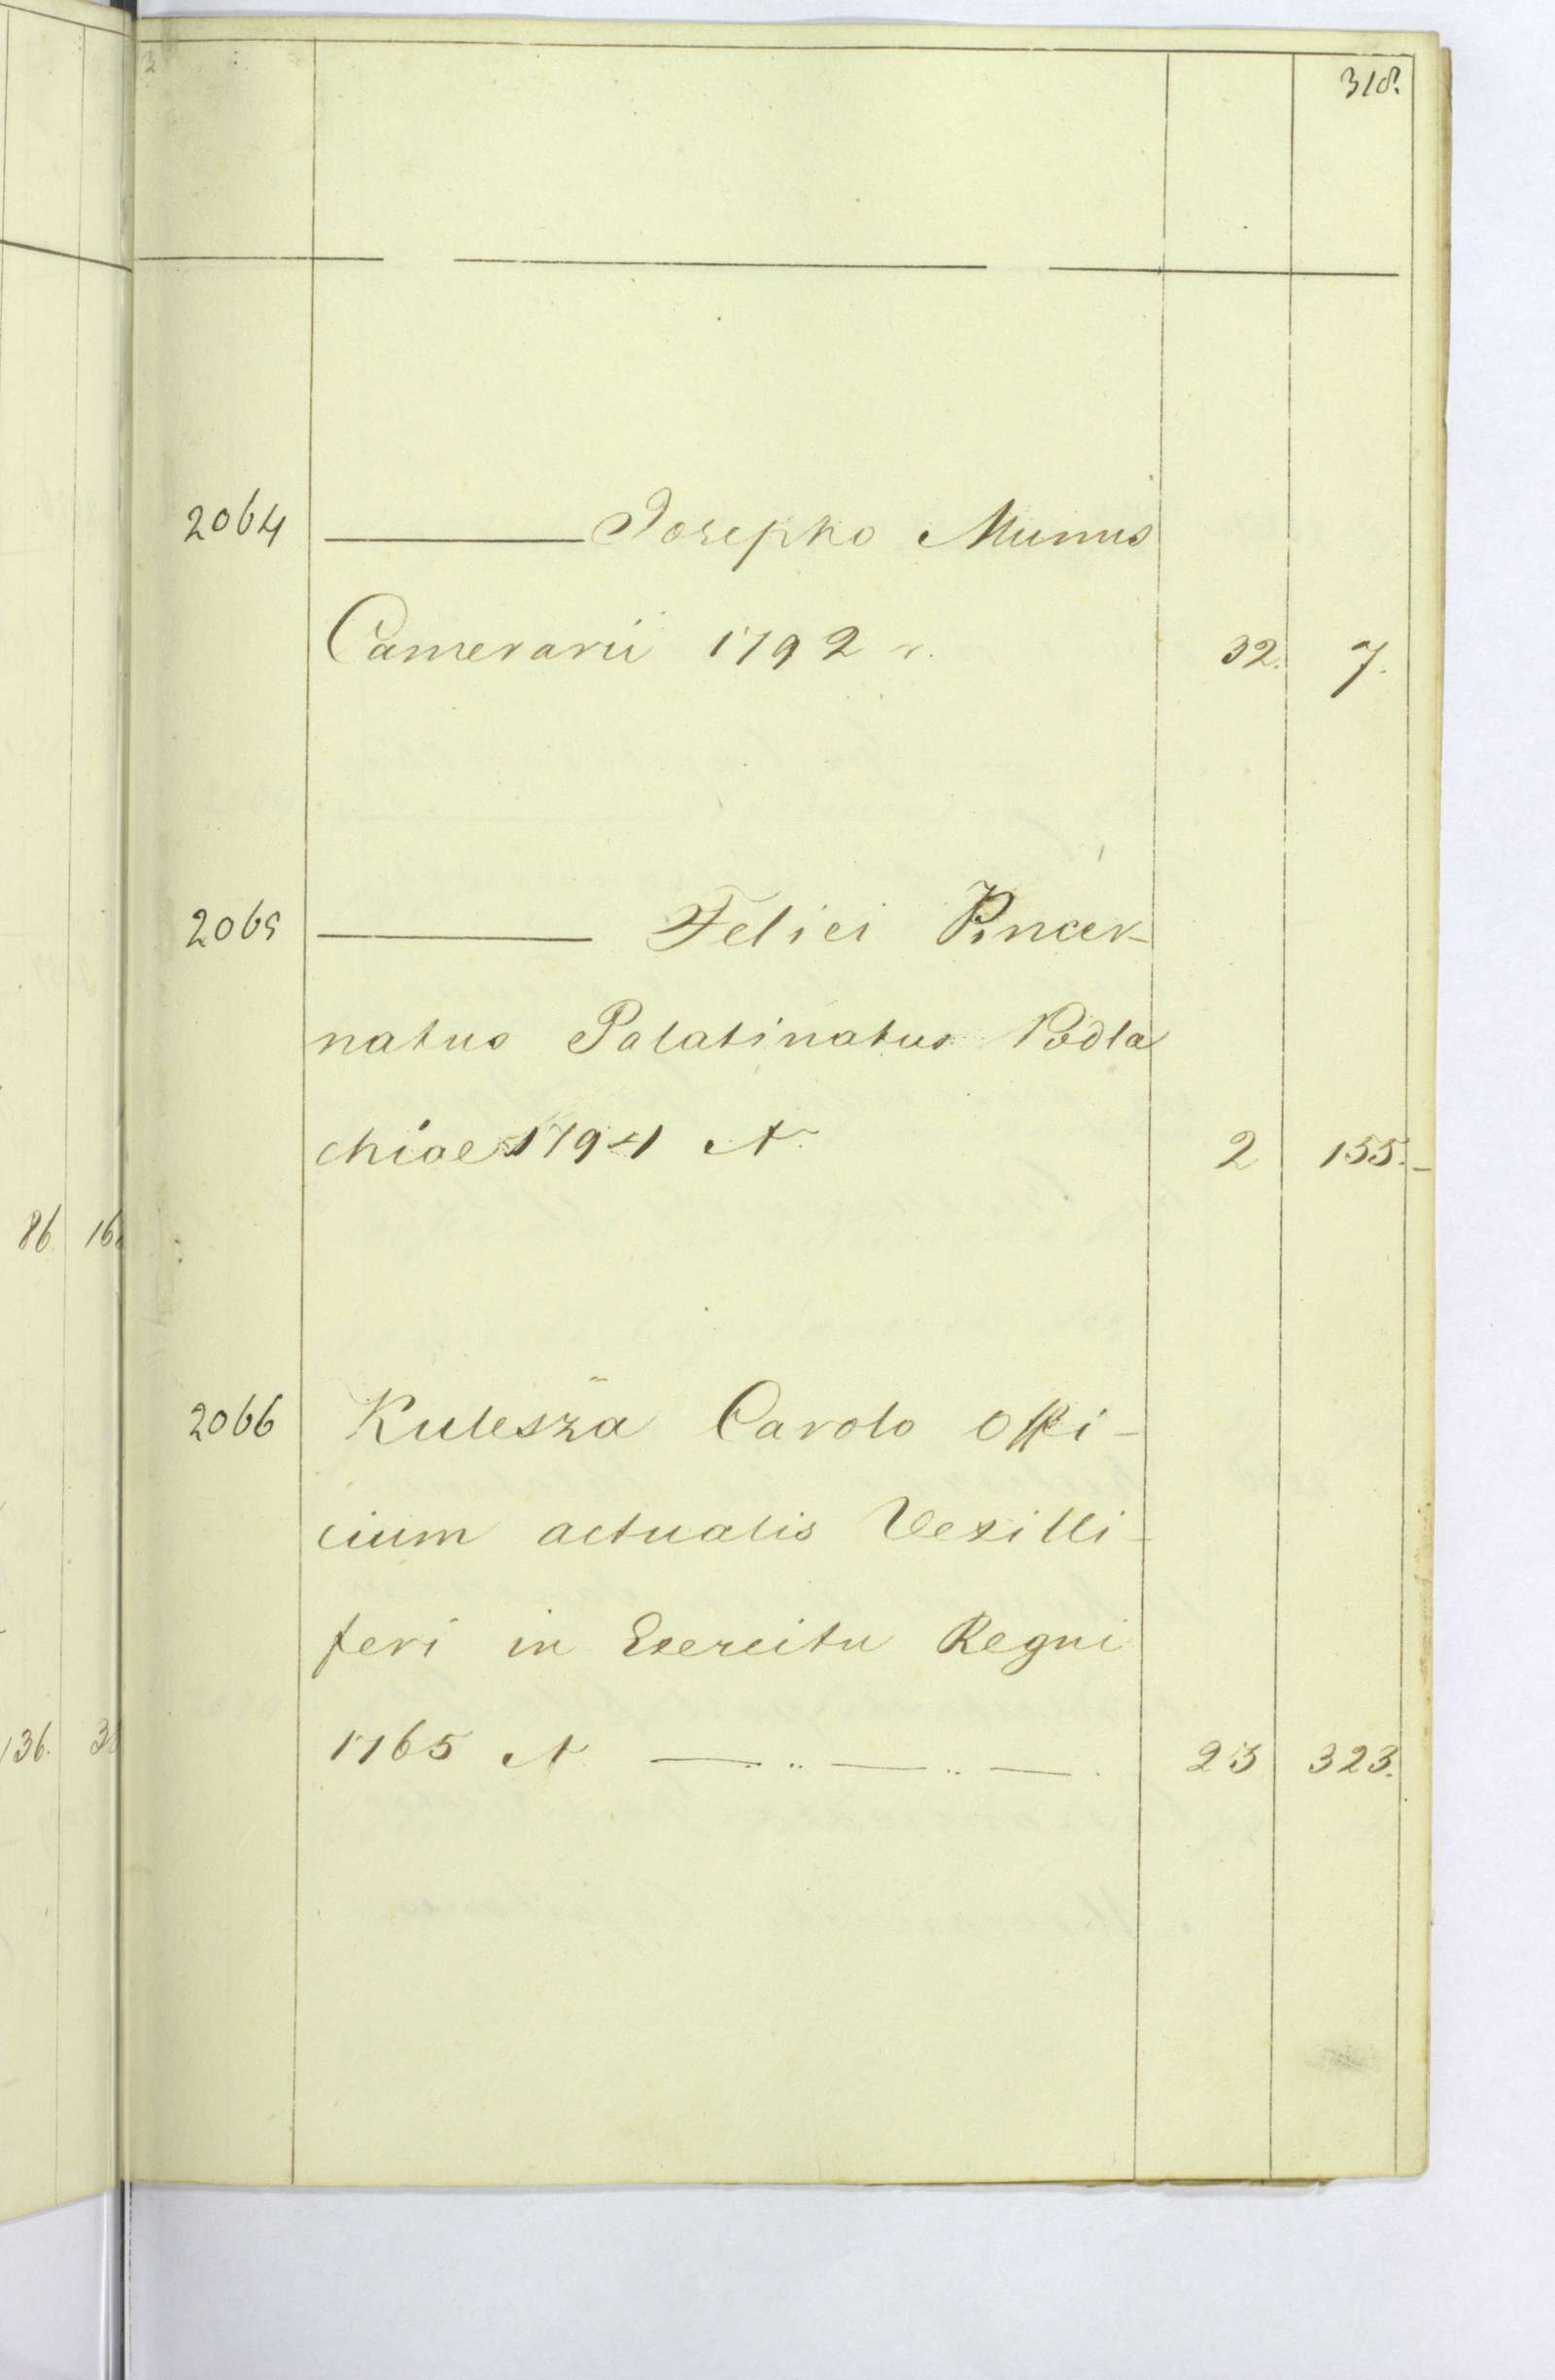 318.
2064 ——— Josepho Munus
Camerarii 1792 r. 32. 7.
2065 ——— Felici Pincer-
natus Palatinatus Podla
chiae 1794 r. 2 155.
2066 Kulesza Carolo Offi-
cium actualis Vexilli-
feri in Exercitu Regni
1765 r. — .. — .. — . 23 323.
86. 
136.